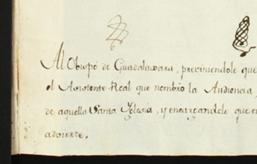 Al Obispo de Guadalaxara, previniendole que
el Asistente-Real que nombro la Audiencia,
de aquella Santa Iglesia, y encargandole que
advierte.